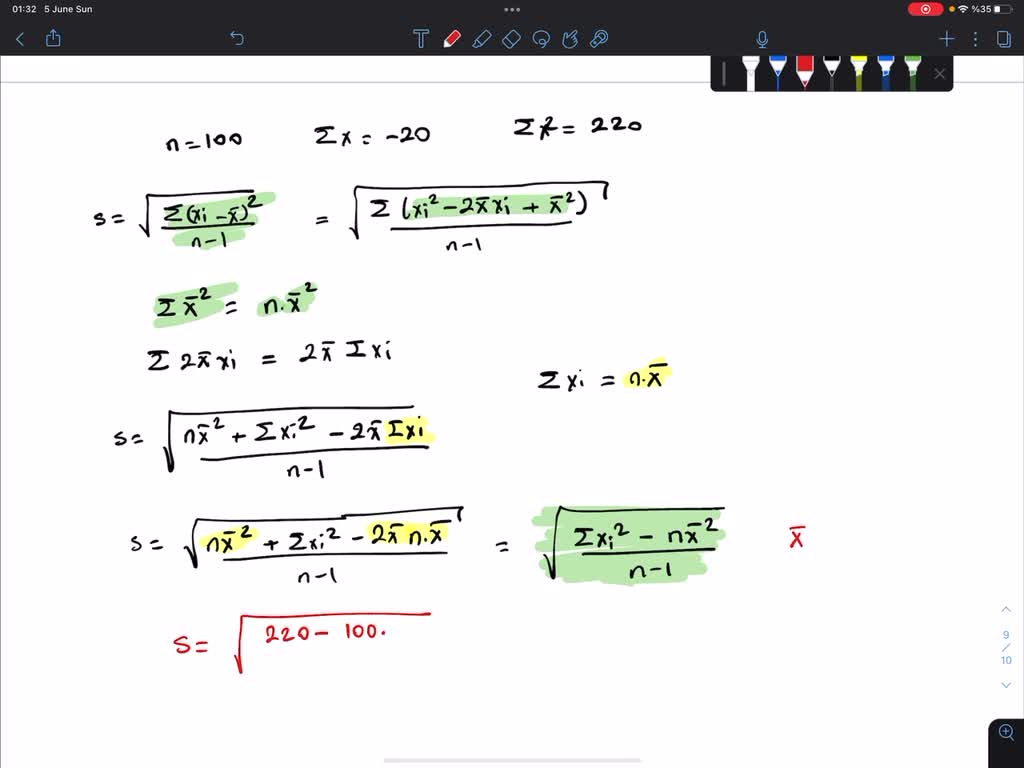 01:32 5 June Sun
%35
T
n=100 Σx = -20 Σx² = 220
s = √(Σ(xi - x̄)² / n-1) = √(Σ(xi² - 2x̄xi + x̄²) / n-1)
Σx̄² = n.x̄²
Σ2x̄xi = 2x̄ Σxi
Σxi = n.x̄
s = √(nx̄² + Σxi² - 2x̄Σxi / n-1)
s = √(nx̄² + Σxi² - 2x̄n.x̄ / n-1) = √(Σxi² - nx̄² / n-1) x̄
s = √(220 - 100.
9
/
10